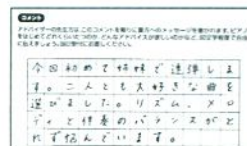 コメント
アドバイザーの先生方は、このコメントを頼りに皆方へのメッセージを書かれます。ピアノ
をはじめてどれくらいたつのか、どんなアドバイスが欲しいのかなど、
今回初めて姉妹で連弾しま
す。二人とも大好きな曲を
選びました。リズム、メロ
ディと伴奏のバランスがと
れず悩んでいます。